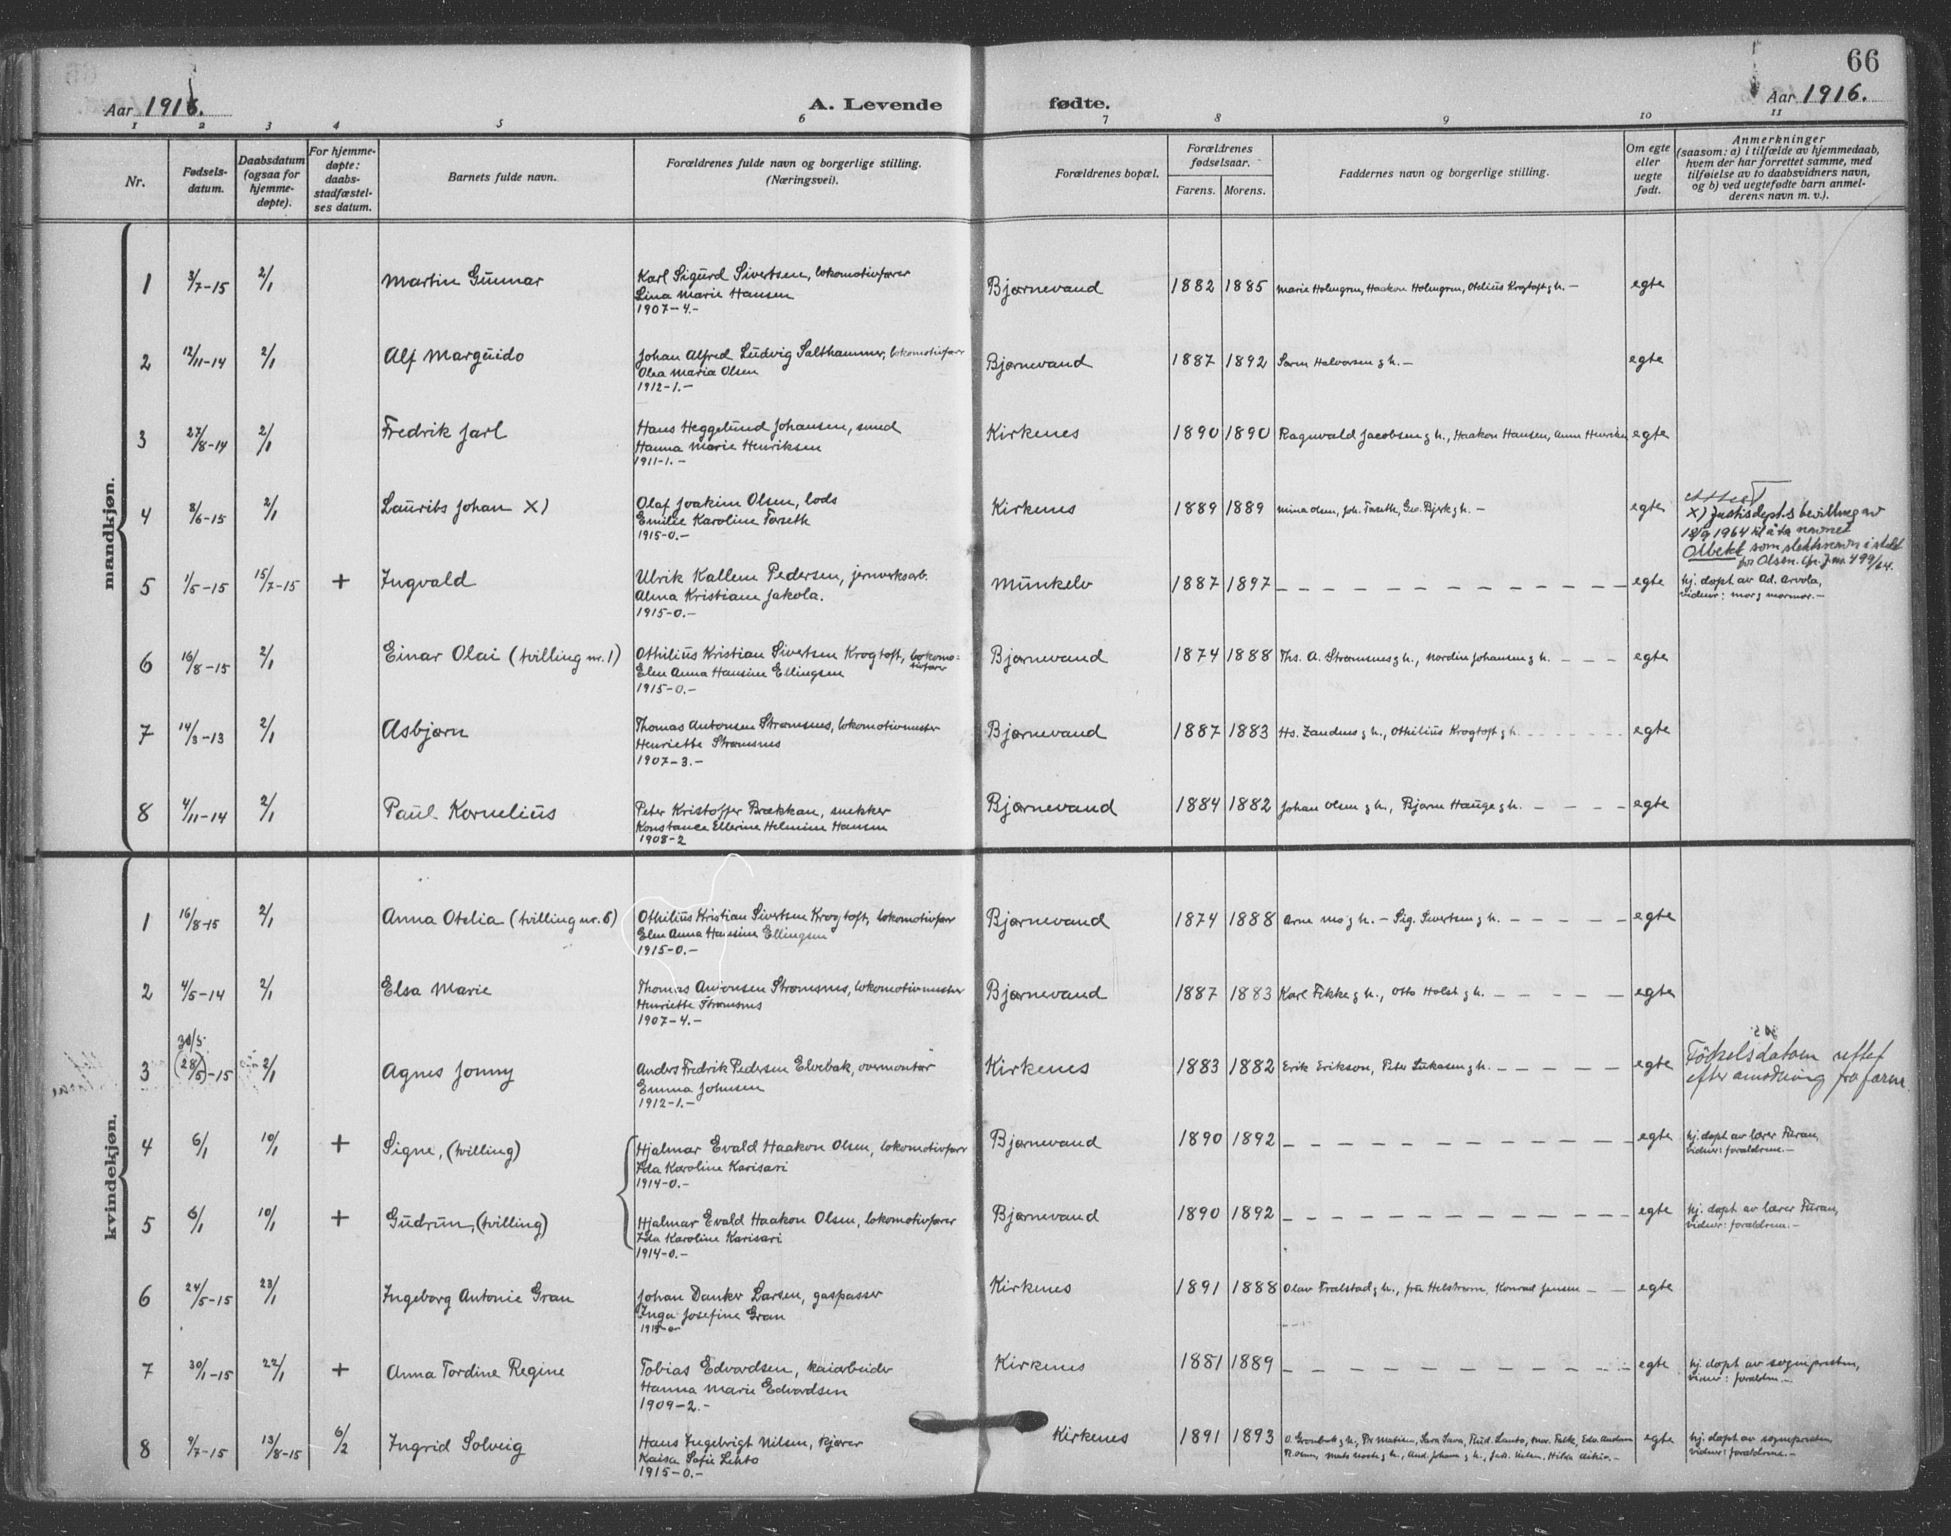 66
Aar 1916.
A. Levende fødte.
Aar 1916.
1 2 3 4 5 6 7 8 9 10 11
Nr.
Fødsels-
datum.
Daabsdatum
(ogsaa for
hjemme-
døpte).
For hjemme-
døpte:
daabs-
stadfæstel-
ses datum.
Barnets fulde navn.
Forældrenes fulde navn og borgerlige stilling.
(Næringsvei).
Forældrenes bopæl.
Forældrenes
fødselsaar.
Farens. Morens.
Faddernes navn og borgerlige stilling.
Om egte
eller
uegte
født.
Anmerkninger
(saasom: a) i tilfælde av hjemmedaab,
hvem der har forrettet samme, med
tilføielse av to daabsvidners navn,
og b) ved uegtefødte barn anmel-
derens navn m. v.).
mandkjøn.
1 3/7-15 2/1 Martin Gunnar Karl Sigurd Sivertsen, lokomotivfører Bjørnevand 1882 1885 Marie Holmgren, Haakon Holmgren, Otelius Krogtoft g h. — egte
Lina Marie Hansen
1907-4.-
2 12/11-14 2/1 Alf Marguido Johan Alfred Ludvig Salthammer, lokomotivfører Bjørnevand 1887 1892 Søren Halvorsen g h. — egte
Olea Maria Olsen
1912-1.-
3 27/8-14 2/1 Fredrik Jarl Hans Heggelund Johansen, smed Kirkenes 1890 1890 Ragnvald Jacobsen g h., Haakon Hansen, Anna Henriksen egte
Hanna Marie Henriksen
1911-1.-
4 8/6-15 2/1 Laurits Johan X) Olaf Joakim Olsen, lods Kirkenes 1889 1889 Mina Olsen, Joh. Forseth, Geo. Bjerk g h. — egte
Emilie Karoline Forseth
1915-0.-
X) Justisdept.s bevilling av
18/9 1964 til å ta navnet
Olbekk som slektsnavn i stedet
for Olsen. Cfr. J.nr. 499/64.
5 1/5-15 15/7-15 + Ingvald Ulrik Kallem Pedersen, jernverksarb. Munkelv 1887 1897 — egte hj. døpt av Ad. Arvola,
Alma Kristiane Jakola. vidner: mor g mormor.-
1915-0.-
6 16/8-15 2/1 Einar Olai (tvilling nr. 1) Othilius Kristian Sivertsen Krogtoft, lokomo-
tivfører Bjørnevand 1874 1888 Ths. A. Strømsnes g h., Nordine Johansen g h. — egte
Elen Anna Hansine Ellingsen
1915-0.-
7 14/3-13 2/1 Asbjørn Thomas Antonsen Strømsnes, lokomotivmester Bjørnevand 1887 1883 Hs. Zanders g h., Othilius Krogtoft g h. egte
Henriette Strømsnes
1907-3.-
8 4/11-14 2/1 Paul Kornelius Peter Kristoffer Brækkan, snekker Bjørnevand 1884 1882 Johan Olsen g h., Bjarne Hauge g h. — egte
Konstance Ellerine Helmine Hansen
1908-2
kvindekjøn.
1 16/8-15 2/1 Anna Otelia (tvilling nr. 6) Othilius Kristian Sivertsen Krogtoft, lokomotivfører Bjørnevand 1874 1888 Arne Mo g h. — Sig. Sivertsen g h. — egte
Elen Anna Hansine Ellingsen
1915-0.-
2 4/5-14 2/1 Elsa Marie Thomas Antonsen Strømsnes, lokomotivmester Bjørnevand 1887 1883 Karl Fikke g h., Otto Holst g h. — egte
Henriette Strømsnes
1907-4.-
30/5
3 (28/5)-15 2/1 Agnes Jonny Anders Fredrik Pedersen Elvebak, overmontør Kirkenes 1883 1882 Erik Erikson, Peter Lukasen g h. — egte Fødselsdatoen rettet
Emma Johnsen efter anmodning fra faren.
1912-1.-
4 6/1 10/1 + Signe, (tvilling) Hjalmar Evald Haakon Olsen, lokomotivfører Bjørnevand 1890 1892 — egte hj. døpt av lærer Furan,
Ida Karoline Karisari vidner: forældrene.-
1914-0.-
5 6/1 10/1 + Gudrun, (tvilling) Hjalmar Evald Haakon Olsen, lokomotivfører Bjørnevand 1890 1892 — egte hj. døpt av lærer Furan,
Ida Karoline Karisari vidner: forældrene.-
1914-0.-
6 24/5-15 23/1 Ingeborg Antonie Gran Johan Danker Larsen, gaspasser Kirkenes 1891 1888 Olav Tralstad g h., fru Helstrøm, Konrad Jensen — egte
Inga Josefine Gran
1915-0-
7 30/1-15 22/1 + Anna Tordine Regine Tobias Edvardsen, kaiarbeider Kirkenes 1881 1889 — egte hj. døpt av sognepresten,
Hanna Marie Edvardsen vidner: forældrene.-
1909-2.-
8 9/7-15 13/8-15 6/2 Ingrid Solveig Hans Ingebrigt Nilsen, kjører Kirkenes 1891 1893 egte hj. døpt av sognepresten,
Kaisa Sofie Lehto vidner: forældrene.-
1915-0.-